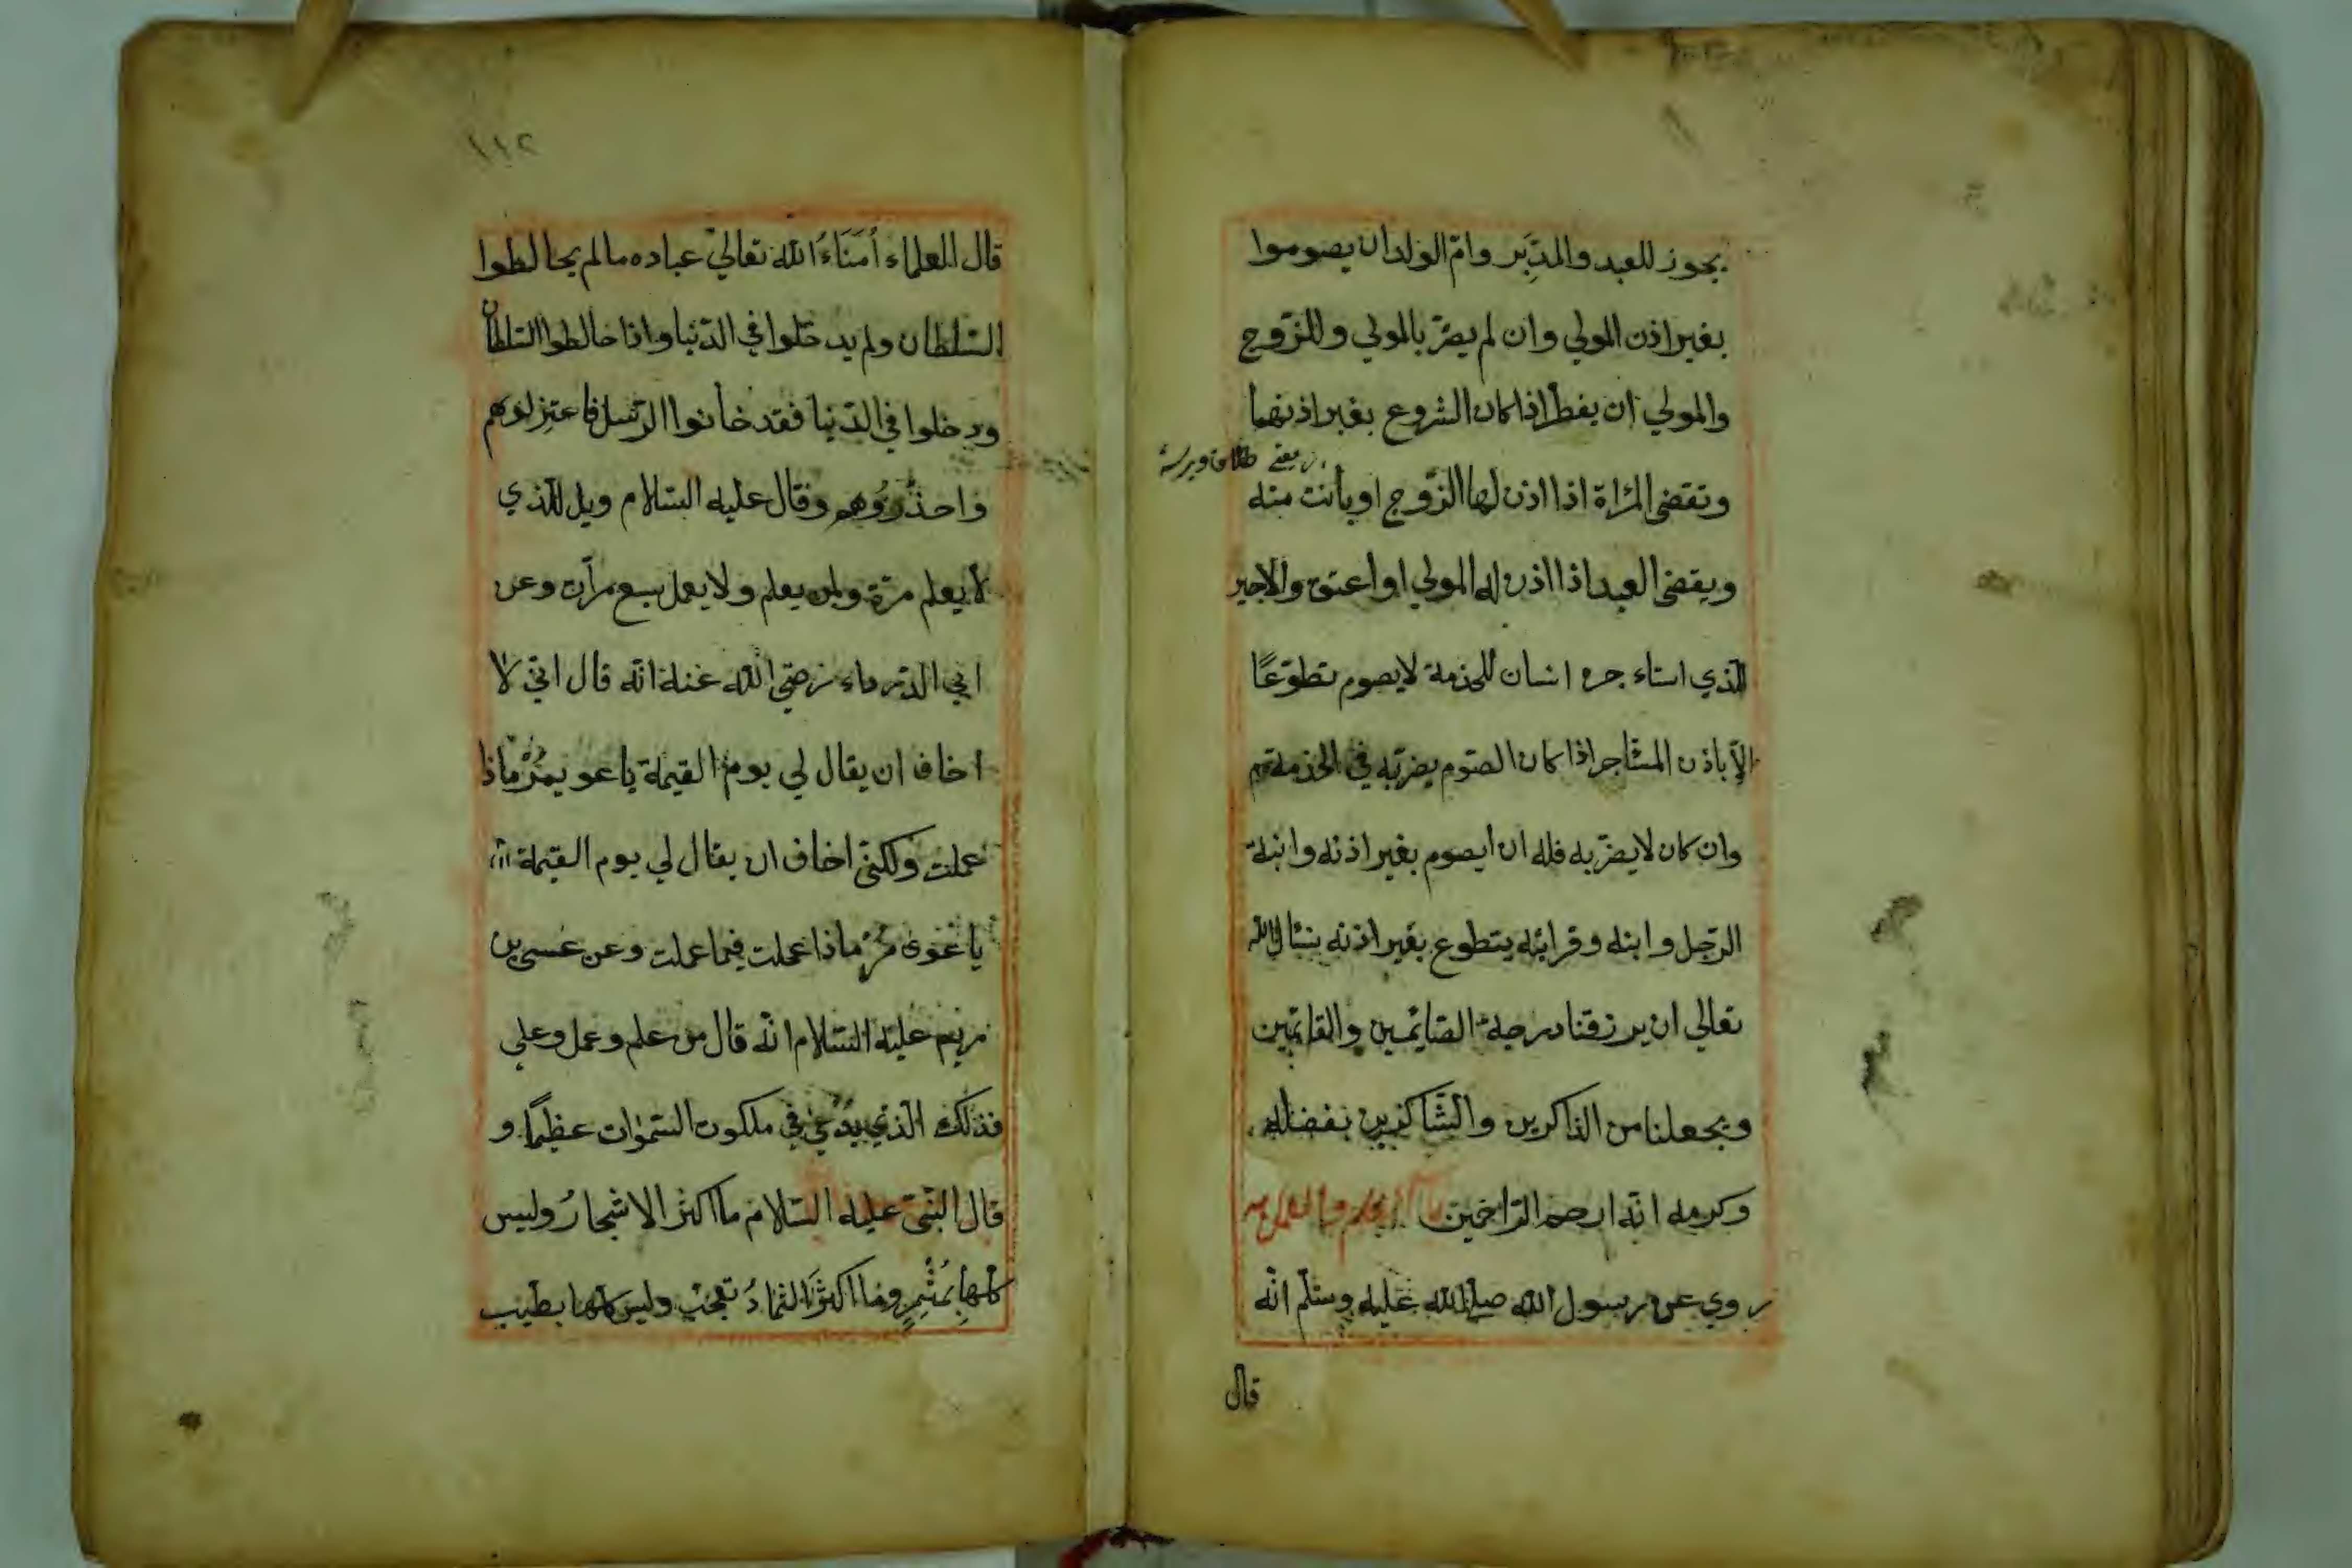 يجوز للعبد والمدَبِّر وامّ الولد ان يصوموا
بغير اذن المولي وان لم يضرّ بالمولي وللزّوج
والمولي ان يفطر اذا كان الشروع بغير اذنهما
يعني طلاق ويرسه
وتقضى المرْاة اذا اذن لها الزّوج او بأنت منه
ويقضى العبد اذا اذن له المولي او اعتق والاجير
الّذي استاء جره انسان للخدمة لا يصوم تطوّعًا
الاّ باذن المستأجر اذا كان الصّوم يضرّ به في الخدمة
وان كان لا يضرّ به فله ان يصوم بغير اذنه وابنة
الرّجل وابنه وقرابته يتطوع بغير اذنه نسأل اللّه
تعالي ان يرزقنا درجة الصّائمين والقائمين
ويجعلنا من الذاكرين والشّاكرين بفضله
وكرمه انّه ارحم الرّاحمين
روي عن رسول اللّه صلى اللّه عليه وسلّم انّه
قال
١١٢
قال العلماء أُمَنَاءُ اللّه تعالي عباده مالم يخالطوا
السّلطان ولم يدخلوا في الدّنيا واذا خالطوا السّلطان
ودخلوا في الدّنيا فقد خانوا الرّسل فاعتزلوهم
واحذَرُوهم وقال عليه السّلام ويل للّذي
لا يعلم مرّة ولمن يعلم ولا يعمل سبع مرّات وعن
ابي الدّرداء رضي اللّه عنه انّه قال انّي لا
اخاف ان يقال لي يوم القيمة يا عويمرُ ماذا
عملت ولكنّي اخاف ان يقال لي يوم القيمة
يا عوى مرُ ماذا عملت فيما عملت وعن عسى بن
مريم عليه السّلام انّه قال من علم وعمل وعلي
فذلك الّذي يدعي في ملكوت السّموات عظيمًا و
قال النّبي عليه السّلام ما اكثر الاشجارُ وليس
كلّها بمُثْمِرٍ وما اكثرَ الثمارُ تعجب وليس كلّها بطيّب